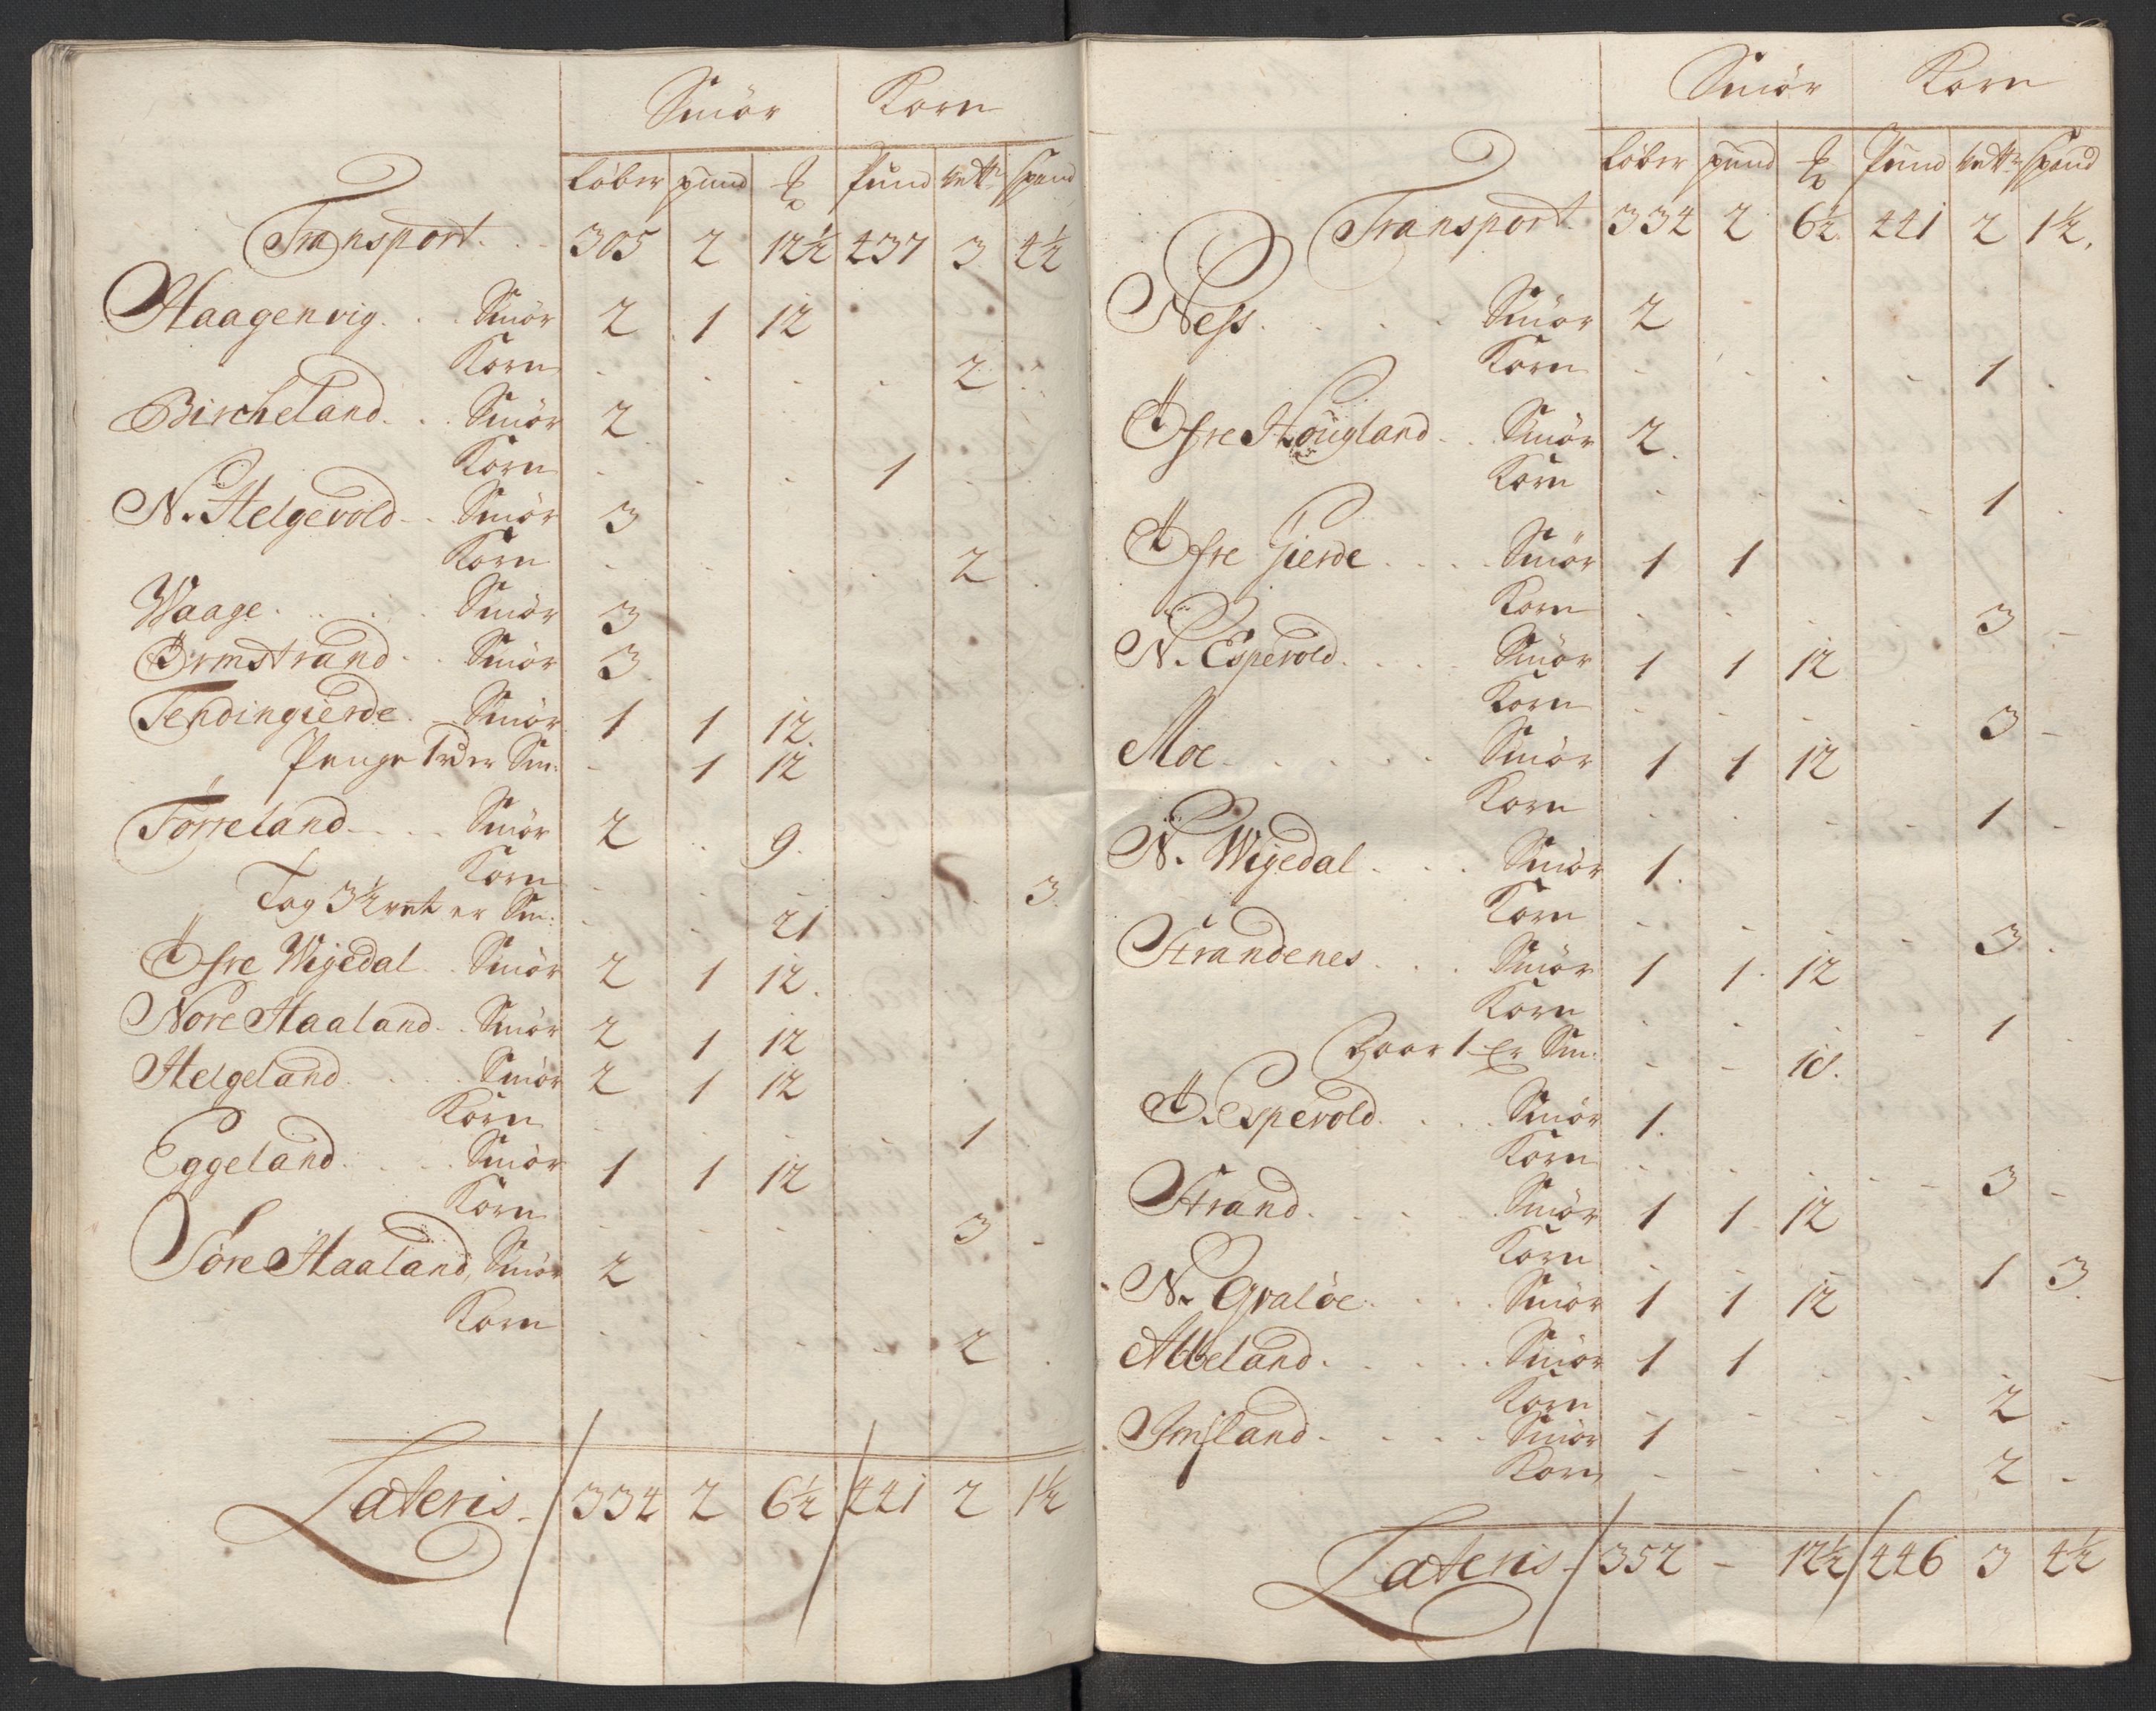 Smör Korn
Löber pund ℔ Pund vett spand
Transport 305 2 12½ 437 3 4½
Haagenvig Smör 2 1 12
Korn 2
Bircheland Smör 2
Korn 1
N. Helgevold Smör 3
Korn 2
Waage Smör 3
Ørmstrand Smör 3
Tendingierde Smör 1 1 12
Penge 1 rd er Sm: 1 12
Törreland Smör 2 9
Korn 3
Tog 3½ vett er Sm: 21
Øfre Wigedal Smör 2 1 12
Nore Haaland Smör 2 1 12
Helgeland Smör 2 1 12
Korn 1
Eggeland Smör 1 1 12
Korn 3
Söre Haaland Smör 2
Korn 2
Lateris 334 2 6½ 441 2 1½
Smör Korn
Löber pund ℔ Pund vett spand
Transport 334 2 6½ 441 2 1½
Ness Smör 2
Korn 1
Øfre Hougland Smör 2
Korn 1
Øfre Gierde Smör 1 1
Korn 3
N. Espevold Smör 1 1 12
Korn 3
Moe Smör 1 1 12
Korn 1
N. Wigedal Smör 1
Korn 3
Strandenes Smör 1 1 12
Korn 1
1 er Sm: 18
Ø. Espevold Smör 1
Korn 3
Strand Smör 1 1 12
Korn 1 3
N. Qvalöe Smör 1 1 12
Abeland Smör 1 1
Korn 2
Imsland Smör 1
Korn 2
Lateris 352 - 12½ 446 3 4½